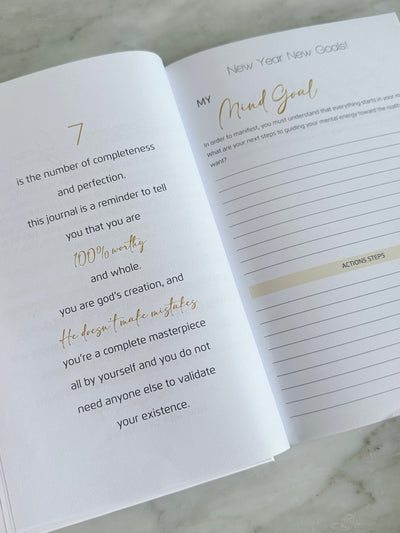 7
is the number of completeness
and perfection.
this journal is a reminder to tell
you that you are
100% worthy
and whole.
you are god's creation, and
He doesn't make mistakes
you're a complete masterpiece
all by yourself and you do not
need anyone else to validate
your existence.
New Year New Goals!
MY
Mind Goal
In order to manifest, you must understand that everything starts in your
What are your next steps to guiding your mental energy toward the reality
want?
ACTIONS STEPS